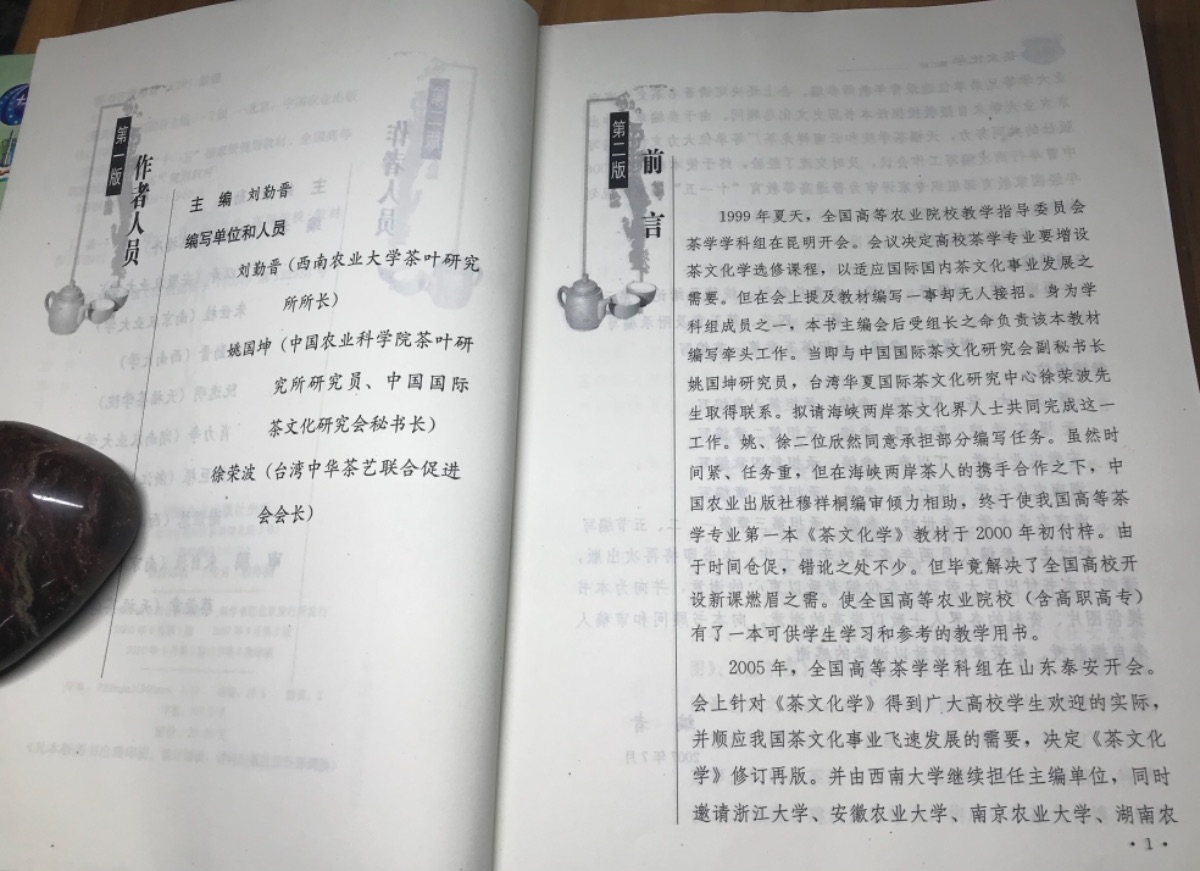 第一版
作者人员
主 编 刘勤晋
编写单位和人员
刘勤晋（西南农业大学茶叶研究
所所长）
姚国坤（中国农业科学院茶叶研
究所研究员、中国国际
茶文化研究会秘书长）
徐荣波（台湾中华茶艺联合促进
会会长）
第二版
前言
1999年夏天，全国高等农业院校教学指导委员会
茶学学科组在昆明开会。会议决定高校茶学专业要增设
茶文化学选修课程，以适应国际国内茶文化事业发展之
需要。但在会上提及教材编写一事却无人接招。身为学
科组成员之一，本书主编会后受组长之命负责该本教材
编写牵头工作。当即与中国国际茶文化研究会副秘书长
姚国坤研究员，台湾华夏国际茶文化研究中心徐荣波先
生取得联系。拟请海峡两岸茶文化界人士共同完成这一
工作。姚、徐二位欣然同意承担部分编写任务。虽然时
间紧、任务重，但在海峡两岸茶人的携手合作之下，中
国农业出版社穆祥桐编审倾力相助，终于使我国高等茶
学专业第一本《茶文化学》教材于2000年初付梓。由
于时间仓促，错讹之处不少。但毕竟解决了全国高校开
设新课燃眉之需。使全国高等农业院校（含高职高专）
有了一本可供学生学习和参考的教学用书。
2005年，全国高等茶学学科组在山东泰安开会。
会上针对《茶文化学》得到广大高校学生欢迎的实际，
并顺应我国茶文化事业飞速发展的需要，决定《茶文化
学》修订再版。并由西南大学继续担任主编单位，同时
邀请浙江大学、安徽农业大学、南京农业大学、湖南农
·1·